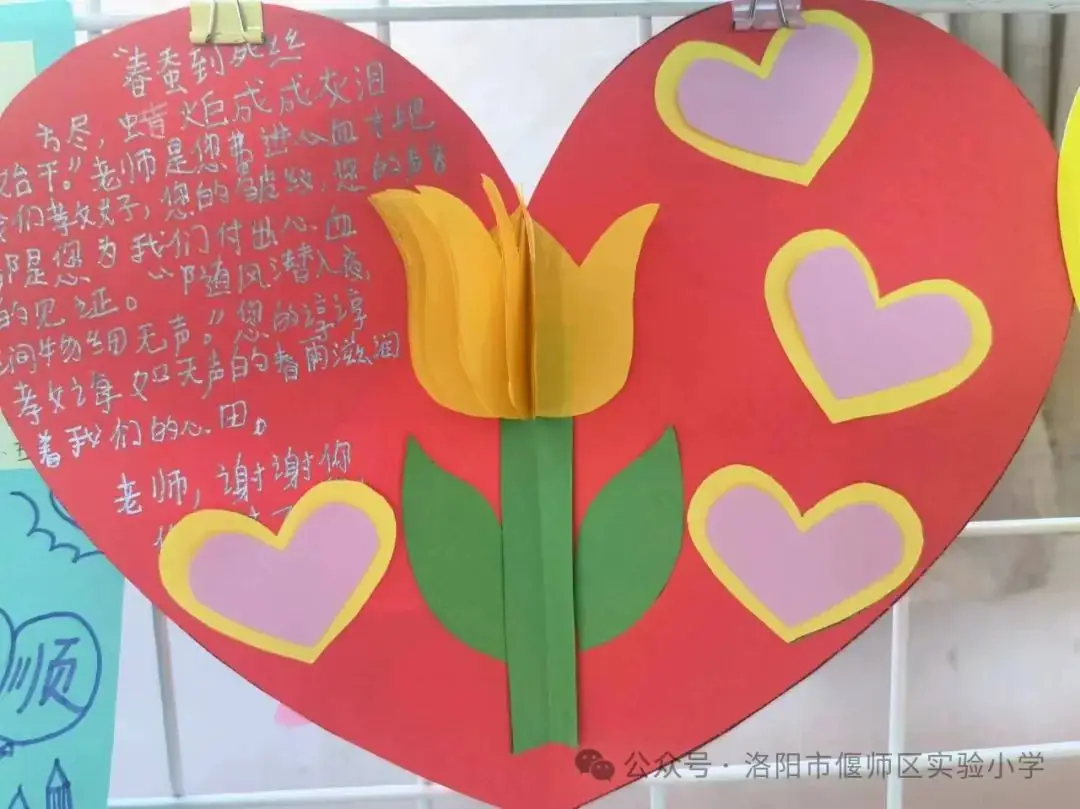 “春蚕到死丝
方尽,蜡炬成成灰泪
始干。”老师是您费进心血才把
我们教好,您的皱纹,您的声音
都是您为我们付出心血
的见证。“随风潜入夜
润物细无声。”您的谆谆
教女之每如无声的春雨滋润
着我们的心田。
老师,谢谢你
顺
公众号·洛阳市偃师区实验小学